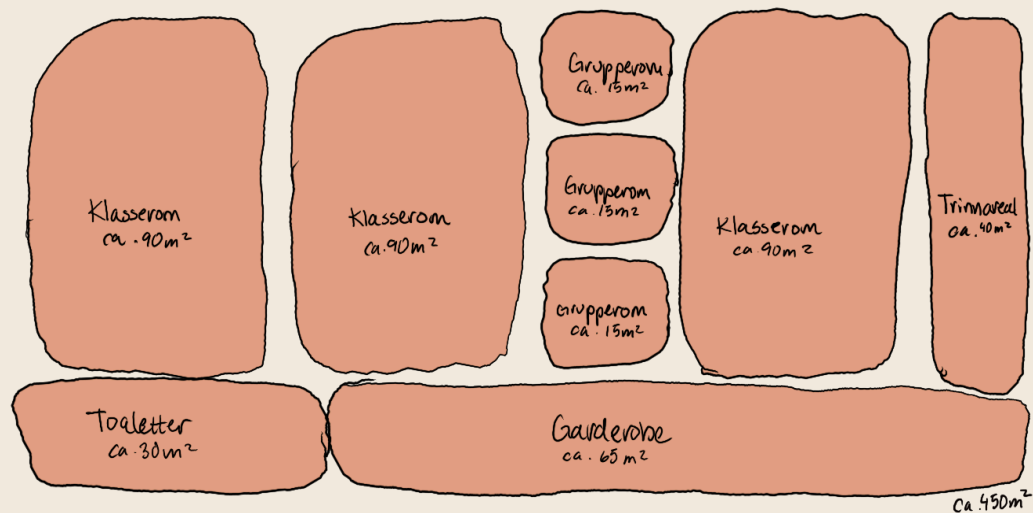 Klasserom
ca. 90m²
Klasserom
ca. 90m²
Grupperom
ca. 15m²
Grupperom
ca. 15m²
Grupperom
ca. 15m²
Klasserom
ca. 90m²
Trinnareal
ca. 40m²
Toaletter
ca. 30m²
Garderobe
ca. 65m²
ca. 450m²